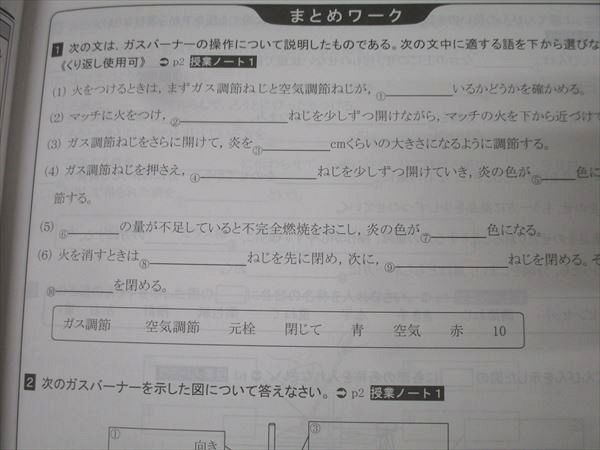 まとめワーク
1 次の文は、ガスバーナーの操作について説明したものである。次の文中に適する語を下から選びな
《くり返し使用可》 ➲ p2 授業ノート1
(1) 火をつけるときは、まずガス調節ねじと空気調節ねじが、①いるかどうかを確かめる。
(2) マッチに火をつけ、②ねじを少しずつ開けながら、マッチの火を下から近づけて
(3) ガス調節ねじをさらに開けて、炎を③cmくらいの大きさになるように調節する。
(4) ガス調節ねじを押さえ、④ねじを少しずつ開けていき、炎の色が⑤色に
節する。
(5) ⑥の量が不足していると不完全燃焼をおこし、炎の色が⑦色になる。
(6) 火を消すときは⑧ねじを先に閉め、次に、⑨ねじを閉める。そ
⑩を閉める。
ガス調節 空気調節 元栓 閉じて 青 空気 赤 10
2 次のガスバーナーを示した図について答えなさい。 ➲ p2 授業ノート1
① ③
向き